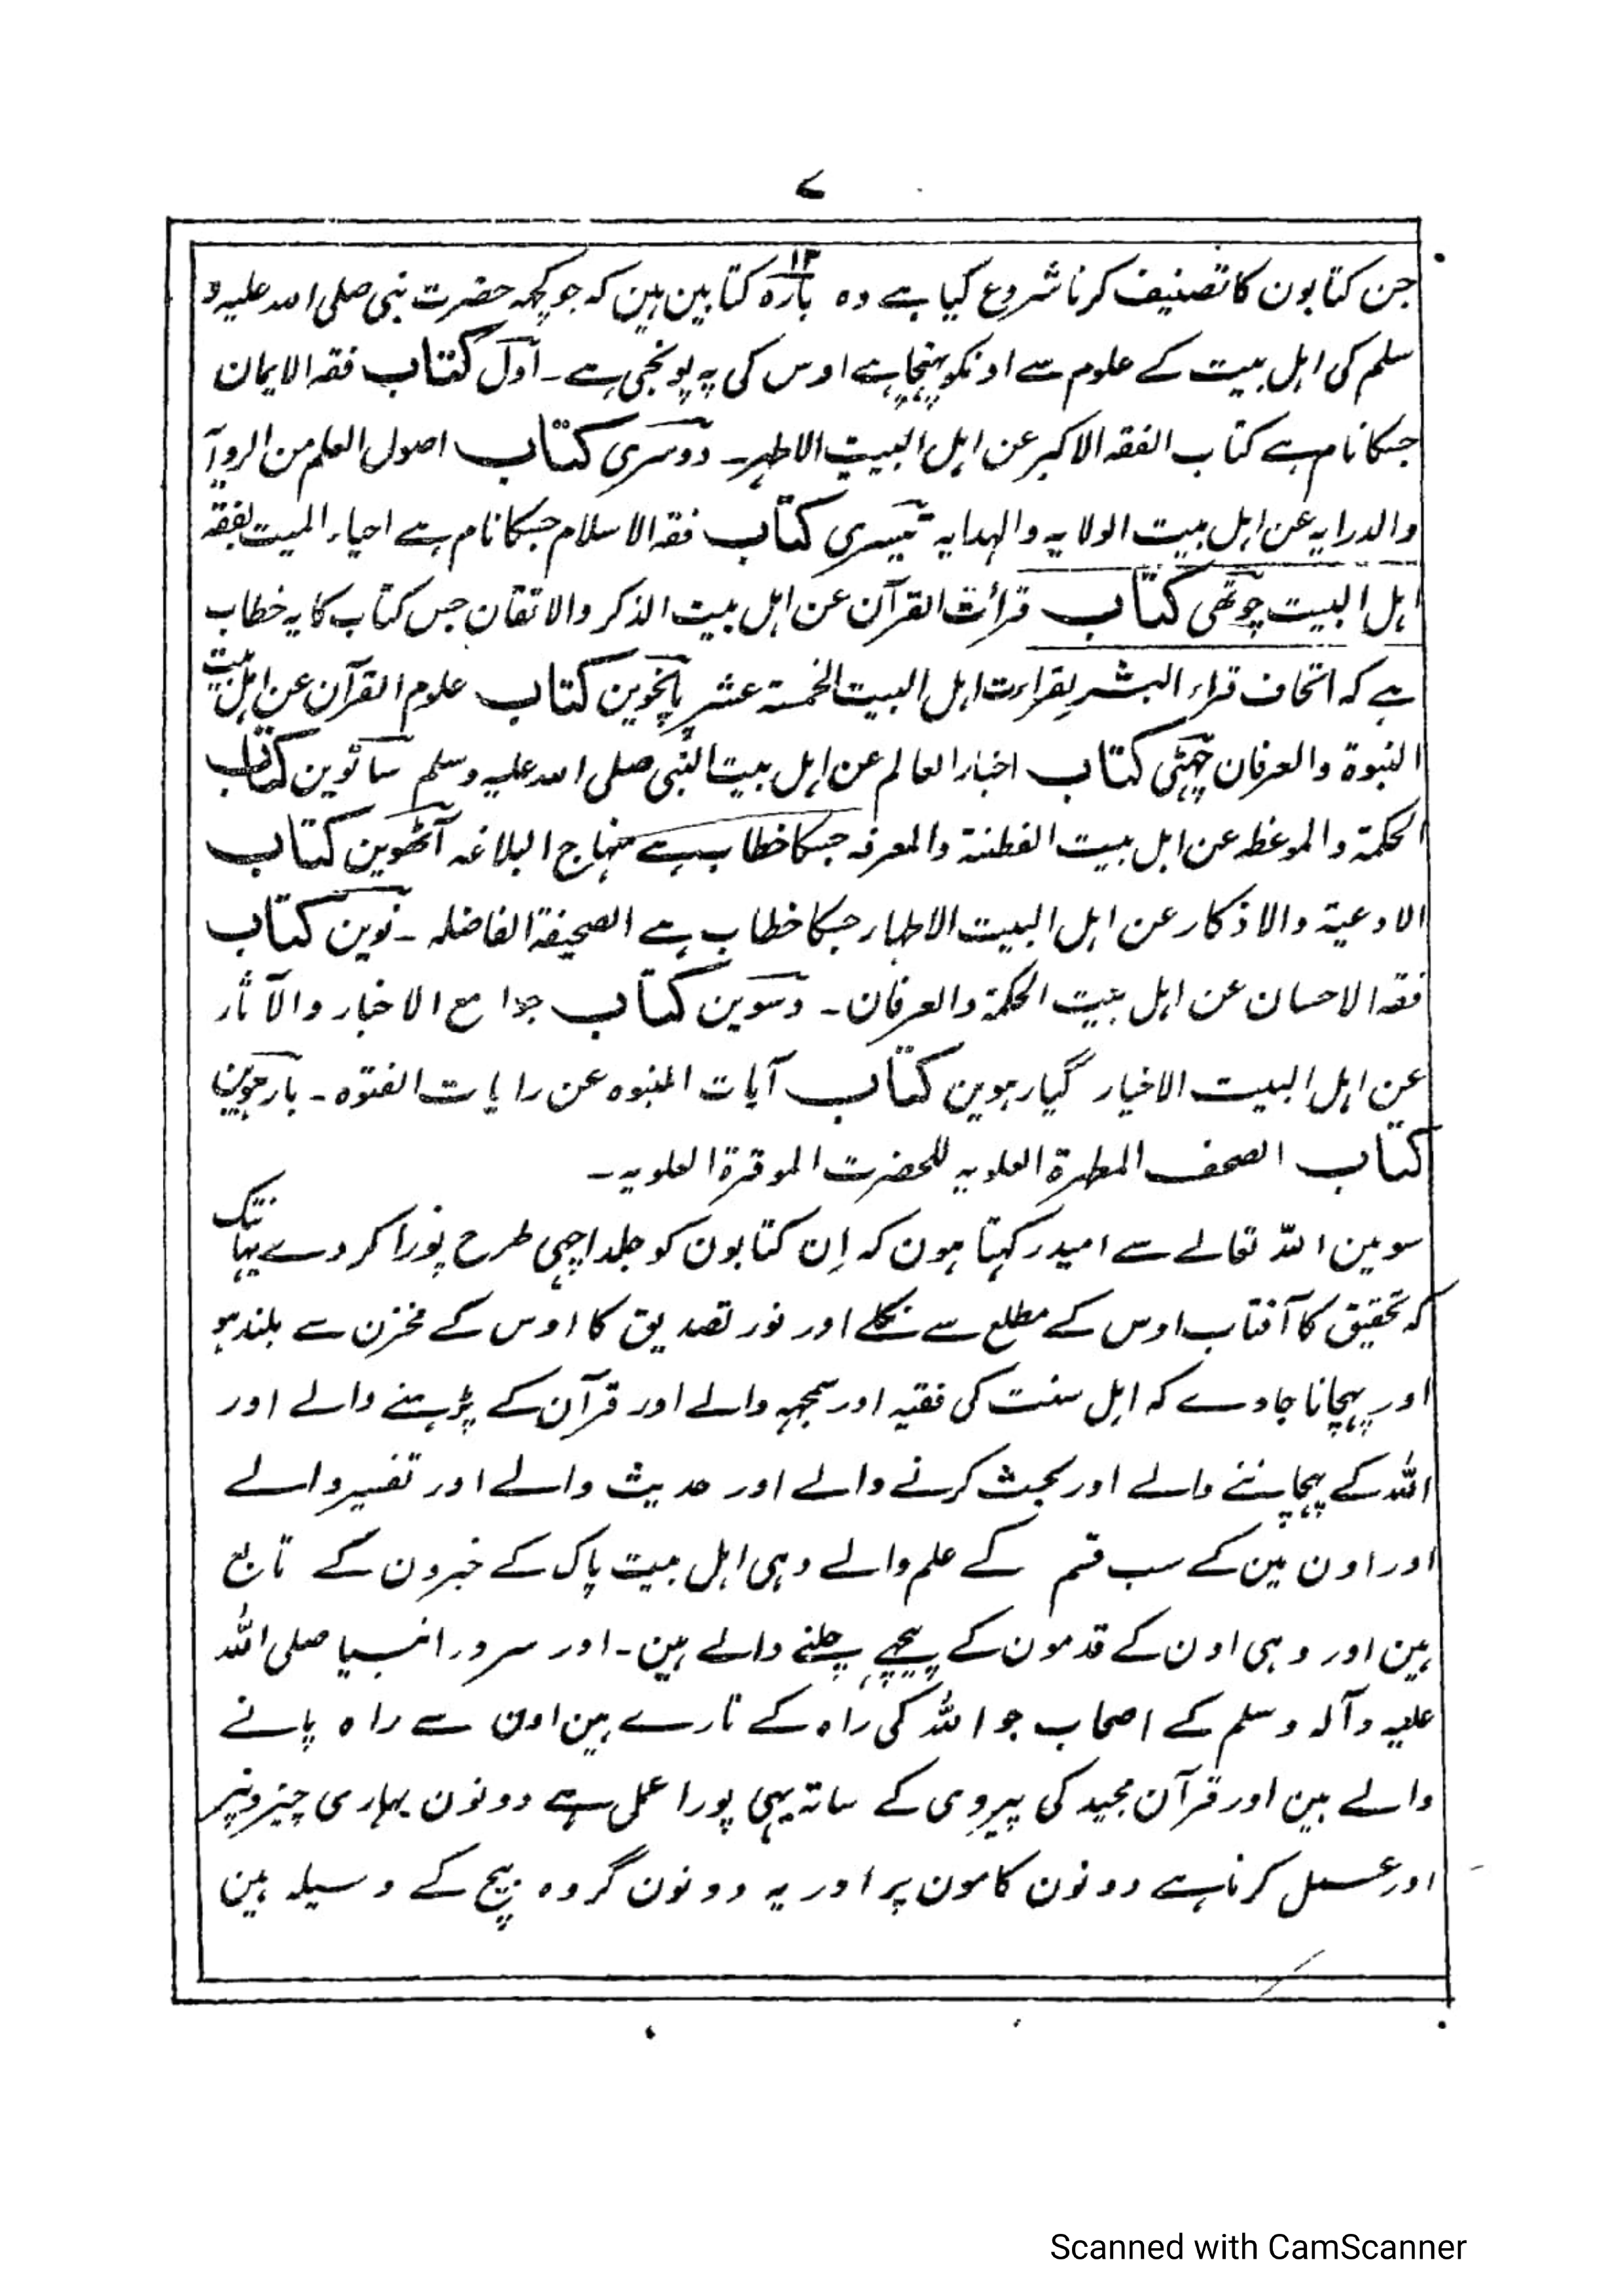 ۷
جن کتابون کا تصنیف کرنا شروع کیا ہے وہ بارہ ۱۲ کتابین ہین کہ جو کچہ حضرت نبی صلی اللہ علیہ و
سلم کی اہل بیت کے علوم سے اونکو پہنچا ہے اوس کی یہ پونجی ہے۔ اول کتاب فقہ الایمان
جسکا نام ہے کتاب الفقہ الاکبر عن اہل البیت الاطہر۔ دوسری کتاب اصول العلم من الروآ
والدرایہ عن اہل بیت الولایہ والہدایہ تیسری کتاب فقہ الاسلام جسکا نام ہے احیاء المیت بفقہ
اہل البیت چوتھی کتاب قرائت القرآن عن اہل بیت الذکر والاتقان جس کتاب کا یہ خطاب
ہے کہ اتحاف قراء البشر بقراءت اہل البیت الخمسۃ عشر پانچوین کتاب علوم القرآن عن اہل بیت
النبوۃ والعرفان چہٹی کتاب اخبار العالم عن اہل بیت النبی صلی اللہ علیہ وسلم ساتوین کتاب
الحکمۃ والموعظہ عن اہل بیت الفطنۃ والمعرفہ جسکا خطاب ہے منہاج البلاغہ آٹھوین کتاب
الادعیۃ والاذکار عن اہل البیت الاطہار جسکا خطاب ہے الصحیفۃ الفاضلہ۔ نوین کتاب
فقہ الاحسان عن اہل بیت الحکمۃ والعرفان۔ دسوین کتاب جوامع الاخبار والآثار
عن اہل البیت الاخیار گیارہوین کتاب آیات النبوہ عن رایات الفتوہ۔ بارہوین
کتاب الصحف المطہرۃ العلویہ للحضرت الموقرۃ العلویہ۔
سو مین اللہ تعالے سے امید رکہتا ہون کہ اِن کتابون کو جلد اچہی طرح پورا کر دے یہانتک
کہ تحقیق کا آفتاب اوس کے مطلع سے نکلے اور نور تصدیق کا اوس کے مخزن سے بلند ہو
اور پہچانا جاوے کہ اہل سنت کی فقیہ اور سمجہہ والے اور قرآن کے پڑہنے والے اور
اللہ کے پہچاننے والے اور بحث کرنے والے اور حدیث والے اور تفسیر والے
اور اون مین کے سب قسم کے علم والے وہی اہل بیت پاک کے خبرون کے تابع
ہین اور وہی اون کے قدمون کے پیچہے چلنے والے ہین۔ اور سرور انبیا صلی اللہ
علیہ وآلہ وسلم کے اصحاب جو اللہ کی راہ کے تارے ہین اون سے راہ پانے
والے ہین اور قرآن مجید کی پیروی کے ساتہ یہی پورا عمل ہے دونون بہاری چیزونپر
اور عمل کرنا ہے دونون کامون پر اور یہ دونون گروہ بیچ کے وسیلہ ہین
Scanned with CamScanner